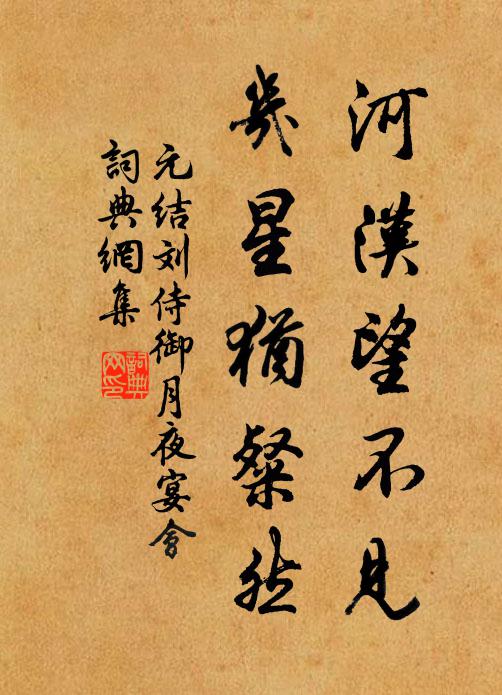 河漢望不見
幾星猶粲然
元结刘侍御月夜宴會
詞典網集
詞典網印